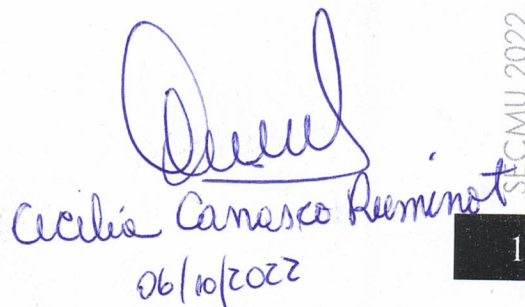 Cecilia Carrasco Ruminot
06/10/2022
SECMU 2022
1